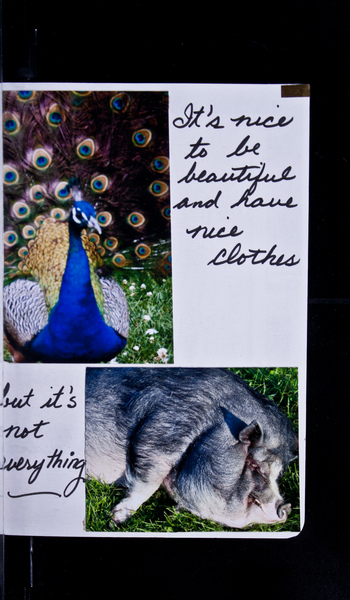 It's nice
to be
beautiful
and have
nice
clothes
but it's
not
everything